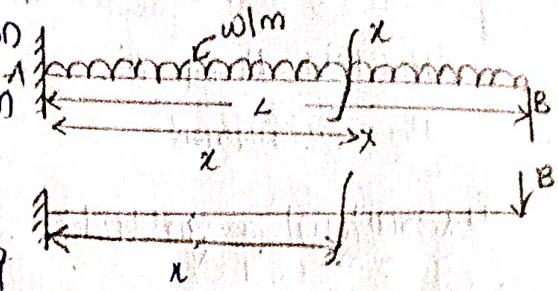 w/m
x
A
L
B
x
x
B
x